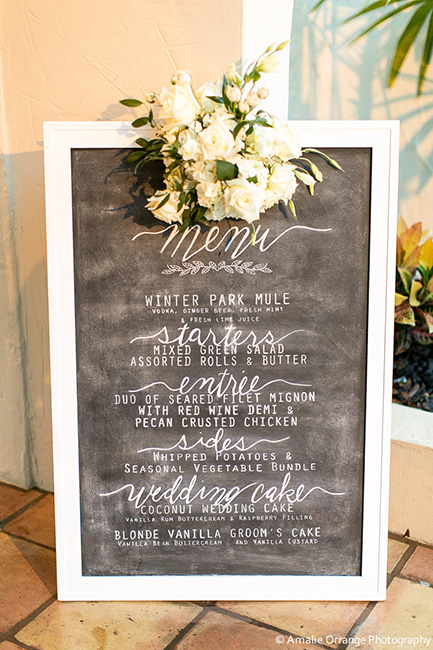 menu
WINTER PARK MULE
VODKA, GINGER BEER, FRESH MINT
& FRESH LIME JUICE
starters
MIXED GREEN SALAD
ASSORTED ROLLS & BUTTER
entrée
DUO OF SEARED FILET MIGNON
WITH RED WINE DEMI &
PECAN CRUSTED CHICKEN
sides
WHIPPED POTATOES &
SEASONAL VEGETABLE BUNDLE
wedding cake
COCONUT WEDDING CAKE
VANILLA RUM BUTTERCREAM & RASPBERRY FILLING
BLONDE VANILLA GROOM'S CAKE
VANILLA BEAN BUTTERCREAM AND VANILLA CUSTARD
© Amalie Orrange Photography